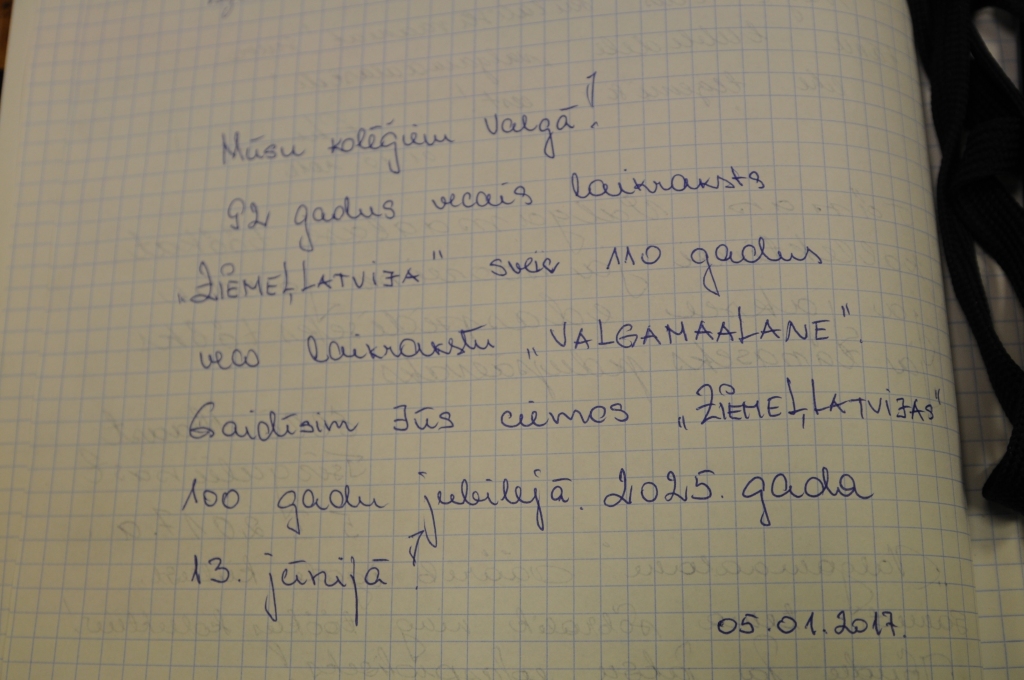 Mūsu kolēģiem Valgā!
92 gadus vecais laikraksts
„ZIEMEĻLATVIJA" sveic 110 gadus
veco laikrakstu „VALGAMAALANE".
Gaidīsim Jūs ciemos „ZIEMEĻLATVIJAS"
100 gadu jubilejā. 2025. gada
13. jūnijā!
05.01.2017.